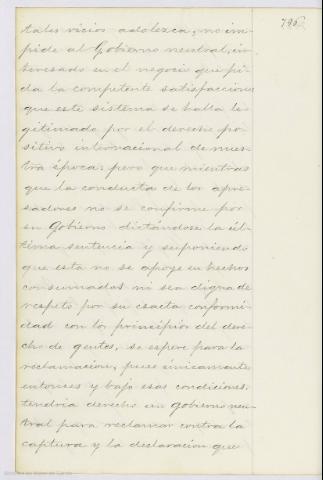 796
tales vicios adolezca, no im-
pide al Gobierno neutral, in-
teresado en el negocio que pi-
da la competente satisfaccion;
que este sistema se halla le-
gitimado por el derecho po-
sitivo internacional de nues-
tra época; pero que mientras
que la conducta de los apre-
sadores no se confirme por
su Gobierno dictándose la úl-
tima sentencia y suponiendo
que esta no se apoye en hechos
consumados ni sea digna de
respeto por su exacta conformi-
dad con los principios del dere-
cho de gentes, se espere para la
reclamacion, pues únicamente
entonces y bajo esas condiciones,
tendria derecho un gobierno neu-
tral para reclamar contra la
captura y la declaracion que